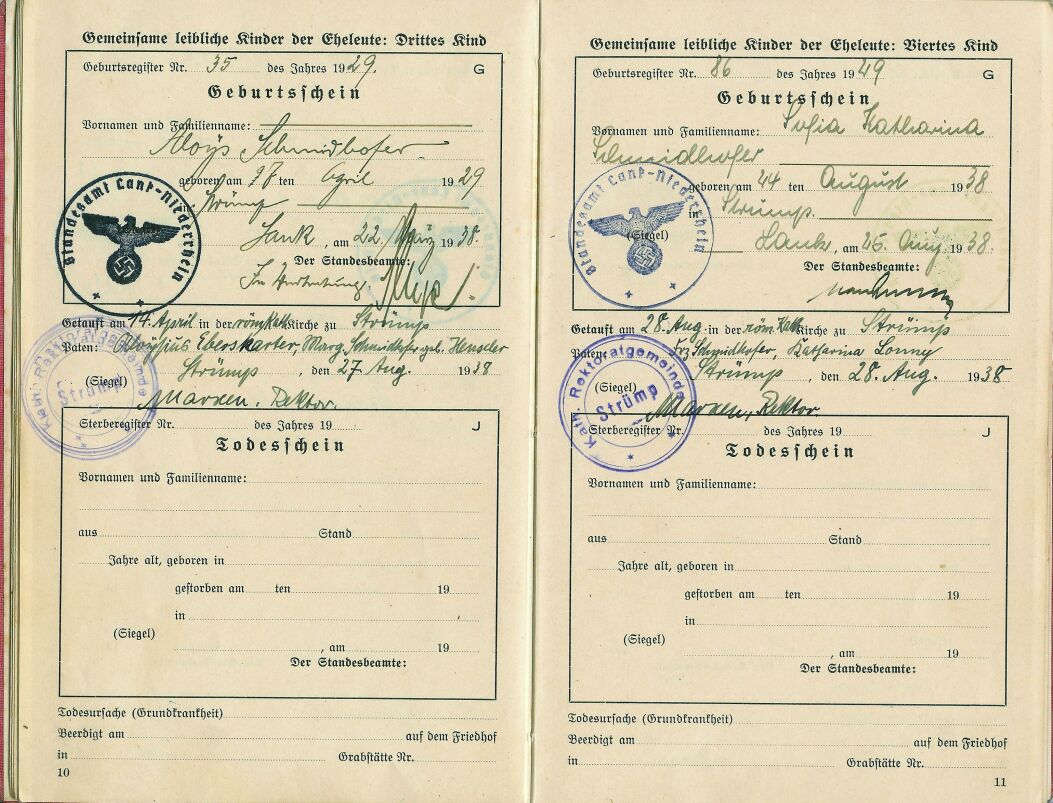 Gemeinsame leibliche Kinder der Eheleute: Drittes Kind
Geburtsregister Nr. 35 des Jahres 1929. G
Geburtsschein
Vornamen und Familienname:
Aloys Schmidhofer
geboren am ten April 1929
Strümp
Standesamt Lank-Niederrhein
Lank, am 22. März 1938.
Der Standesbeamte:
In Vertretung
Getauft am 14. April in der röm. Kath. Kirche zu Strümp
Paten: Aloysius Eberskarter, Marg. Schmidhofer geb. Henseler
(Siegel) Strümp, den 27 Aug. 1938
Kath. Rektoratgemeinde Strümp
Marxen, Rektor.
Sterberegister Nr. des Jahres 19 J
Todesschein
Vornamen und Familienname:
aus Stand
Jahre alt, geboren in
gestorben am ten 19
in
(Siegel)
, am 19
Der Standesbeamte:
Todesursache (Grundkrankheit)
Beerdigt am auf dem Friedhof
in Grabstätte Nr.
10
Gemeinsame leibliche Kinder der Eheleute: Viertes Kind
Geburtsregister Nr. 86 des Jahres 19 G
Geburtsschein
Vornamen und Familienname: Sofia Katharina
Schmidhofer
geboren am ten August 1938
in Strümp.
Standesamt Lank-Niederrhein
(Siegel)
Lank, am Aug. 1938.
Der Standesbeamte:
Getauft am 28. Aug. in der röm. Kath. Kirche zu Strümp
Paten: Frz Schmidhofer, Katharina Lonny
(Siegel) Strümp, den 28. Aug. 1938
Kath. Rektoratgemeinde Strümp
Marxen, Rektor.
Sterberegister Nr. des Jahres 19 J
Todesschein
Vornamen und Familienname:
aus Stand
Jahre alt, geboren in
gestorben am ten 19
in
(Siegel)
, am 19
Der Standesbeamte:
Todesursache (Grundkrankheit)
Beerdigt am auf dem Friedhof
in Grabstätte Nr.
11